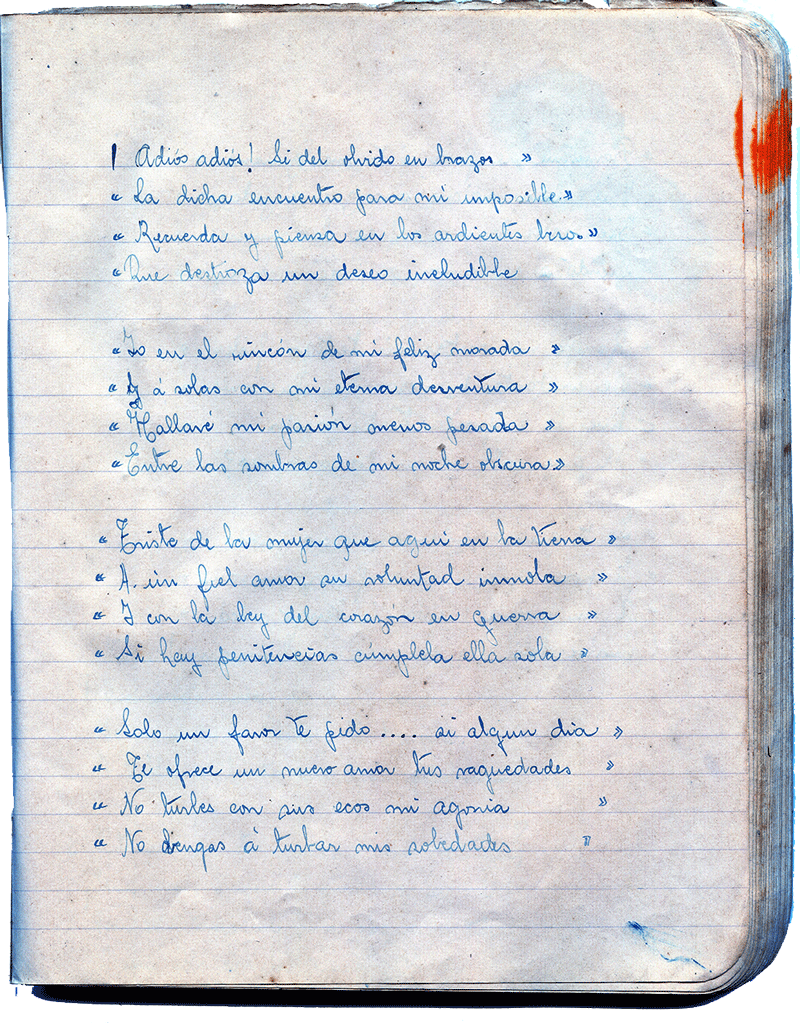 ¡ Adiós adiós! Si del olvido en brazos »
“ La dicha encuentro para mi imposible.»
“ Recuerda y piensa en los ardientes »
“ Que destroza un deseo ineludible
“ Yo en el rincón de mi feliz morada »
“ Y á solas con mi eterna desventura »
“ Hallaré mi pasión menos pesada »
“ Entre las sombras de mi noche obscura»
“ Triste de la mujer que aqui en la tierra »
“ A un fiel amor su voluntad inmola »
“ Y con la ley del corazon en guerra »
“ Si hay penitencias cúmplela ella sola »
“ Solo un favor te pido.... si algun dia »
“ Te ofrece un nuevo amor tus vagüedades »
“ No turbes con sus ecos mi agonia »
“ No vengas á turbar mis soledades »